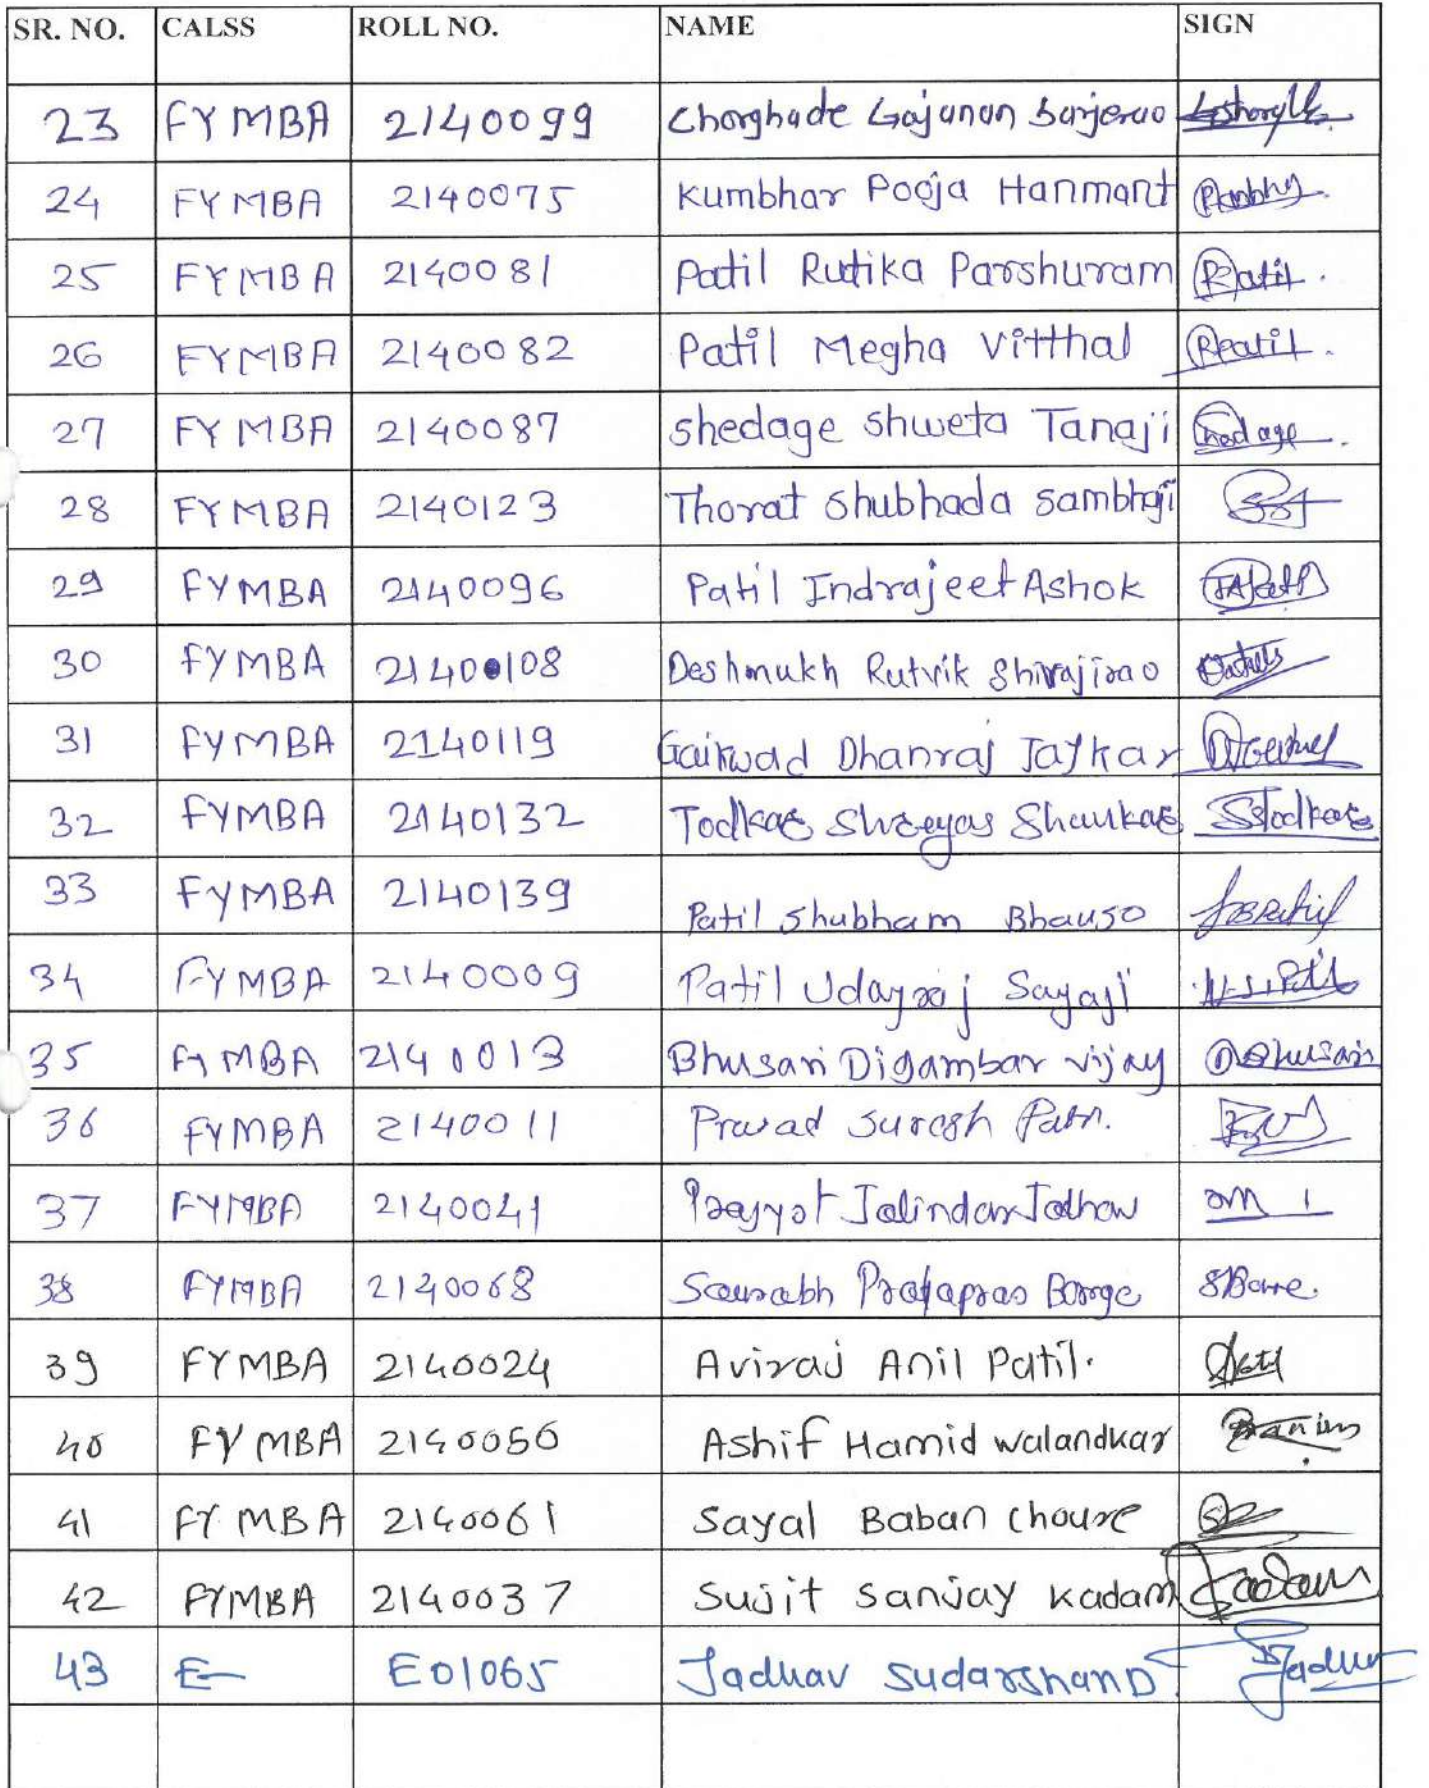 SR. NO. CALSS ROLL NO. NAME SIGN
23 FYMBA 2140099 Chorghade Gajanan Sarjerao
24 FYMBA 2140075 Kumbhar Pooja Hanmant
25 FYMBA 2140081 Patil Rutika Parshuram Patil.
26 FYMBA 2140082 Patil Megha Vitthal Patil.
27 FYMBA 2140087 shedage shweta Tanaji Shedage.
28 FYMBA 2140123 Thorat Shubhada Sambhaji
29 FYMBA 2140096 Patil Indrajeet Ashok
30 FYMBA 2140108 Deshmukh Rutvik Shivajirao
31 FYMBA 2140119 Gaikwad Dhanraj Jaykar
32 FYMBA 2140132 Todkar Shreyas Shankar SSTodkar
33 FYMBA 2140139 Patil Shubham Bhauso
34 FYMBA 2140009 Patil Udayraj Sayaji
35 FYMBA 2140013 Bhusari Digambar Vijay DBhusari
36 FYMBA 2140011 Prasad Suresh
37 FYMBA 2140041 Prajyot Jalindar Jadhav
38 FYMBA 2140068 Sourabh Prataprao Barge
39 FYMBA 2140024 Aviraj Anil Patil.
40 FYMBA 2140056 Ashif Hamid walandkar
41 FYMBA 2140061 Sayal Baban Choure
42 FYMBA 2140037 Sujit Sanjay Kadam Kadam
43 E E01065 Jadhav Sudarshan D. Jadhav